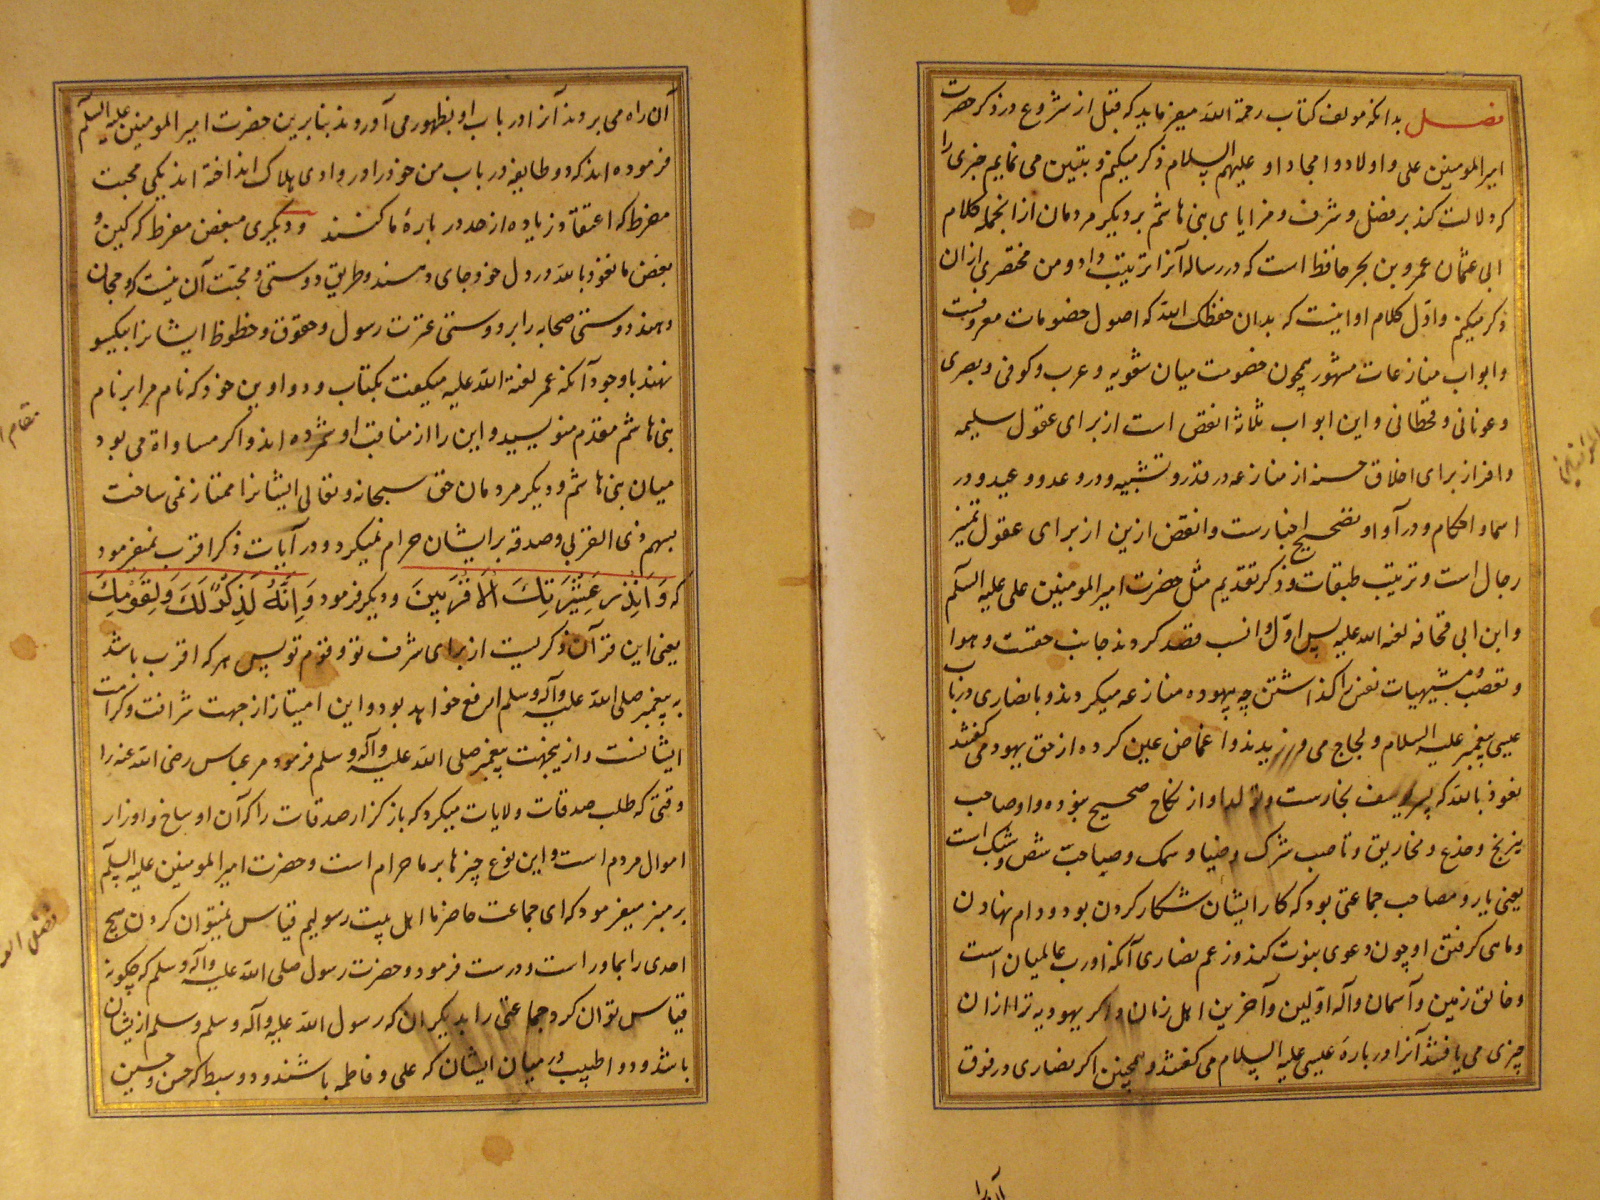 فصل بدانکه مولف کتاب رحمة الله میفرماید که قبل از شروع در ذکر حضرت
امیر المومنین علی و اولاد و امجاد او علیهم السلام ذکر میکنم و تبیین می نمایم چیزی را
که دلالت کند بر فضل و شرف و مزایای بنی هاشم بر دیگر مردمان از انجمله کلام
ابی عثمان عمرو بن بحر حافظ است که در رساله آنرا ترتیب داد و من مختصری از ان
ذکر میکنم و اول کلام او اینست که بدان حفظک الله که اصول خصومات معروفست
و ابواب منازعات مشهور همچون خصومت میان شعوبیه و عرب و کوفی و بصری
و عدنانی و قحطانی و این ابواب ثلاثه انقض است از برای عقول سلیمه
و افراز برای اخلاق حسنه از منازعه در قدر و تشبیه و در وعد و وعید و در
اسما و احکام و در آراء و تصحیح اخبارست و انقض ازین از برای عقول تمییز
رجال است و ترتیب طبقات و ذکر تقدیم مثل حضرت امیر المومنین علی علیه السلم
و ابن ابی قحافه لعنه الله علیه پس اول و انسب قصد کردند جانب حقست و هوا
و تعصب و نفس را کذاشتن چه یهود منازعه میکردند و با نصاری در باب
عیسی پیغمبر علیه السلام و لجاج می ورزیدند و اغماض عین کرده از حق یهود می کفتند
نعوذ بالله که پسر یوسف نجارست و تولد او از نکاح صحیح نبوده و او صاحب
نیرنج و خدع و مخاریق و ناصب شرک و صیاد سمک و صاحب شص و شبک است
یعنی یار و مصاحب جماعتی بود که کار ایشان شکار کردن بود و دام نهادن
و ماهی کرفتن او چون دعوی نبوت کند و زعم نصاری آنکه او رب عالمیان است
و خالق زمین و آسمان و آله اولین و آخرین اهل زمان و اکر یهود بدتر از ان
چیزی می یافتند آنرا در بارهٔ عیسی علیه السلام می کفتند و همچنین اکر نصاری در فوق
آن راه می بردند آنرا در باب او بظهور می آوردند بنا برین حضرت امیر المومنین علیه السلم
فرموده اند که دو طایفه در باب من خود را در وادی هلاک انداخته اند یکی محبت
مفرط که اعتقاد زیاده از حد در بارهٔ ما کنند و دیکری مبغض مفرط که کین و
بغض ما نعوذ بالله در دل خود جای دهند و طریق دوستی و محبت آن نیست که رجحان
دهند دوستی صحابه را بر دوستی عترت رسول و حقوق و حظوظ ایشانرا بیکسو
نهند با وجود آنکه عمر لعنة الله علیه میکفت بکتاب و دواوین خود که نام مرا بر نام
بنی هاشم مقدم منویسید و این را از مناقب او شمرده اند و اکر مساواة می بود
میان بنی هاشم و دیکر مردمان حق سبحانه و تعالی ایشانرا ممتاز نمی ساخت
بسهم ذی القربی و صدقه بر ایشان حرام نمیکرد و در آیات ذکر اقرب نمیفرمود
که وَاَنْذِرْ عَشِیْرَتَكَ الْاَقْرَبِینَ و دیکر فرمود وَاِنَّهُ لَذِكْرٌ لَكَ وَلِقَوْمِكَ
یعنی این قرآن ذکریست از برای شرف تو و قوم تو پس هر که اقرب باشد
به پیغمبر صلی الله علیه و آله وسلم ارفع خواهد بود و این امتیاز از جهت شرافت و کرامت
ایشانست و ازینجهت پیغمبر صلی الله علیه و آله وسلم فرمود مر عباس رضی الله عنه را
وقتی که طلب صدقات ولایات میکرد که بازکزار صدقات را که آن اوساخ و اوزار
اموال مردم است و این نوع چیزها بر ما حرام است و حضرت امیر المومنین علیه السلم
بر منبر میفرمود که ای جماعت حاضر ما اهل بیت رسولیم قیاس نمیتوان کردن هیچ
احدی را بما و راست و درست فرمود و حضرت رسول صلی الله علیه و آله وسلم که چکونه
قیاس توان کرد جماعتی را بدیکران که رسول الله علیه و آله وسلم از یشان
باشد و دو اطیب در میان ایشان که علی و فاطمه باشند و دو سبط که حسن و حسین